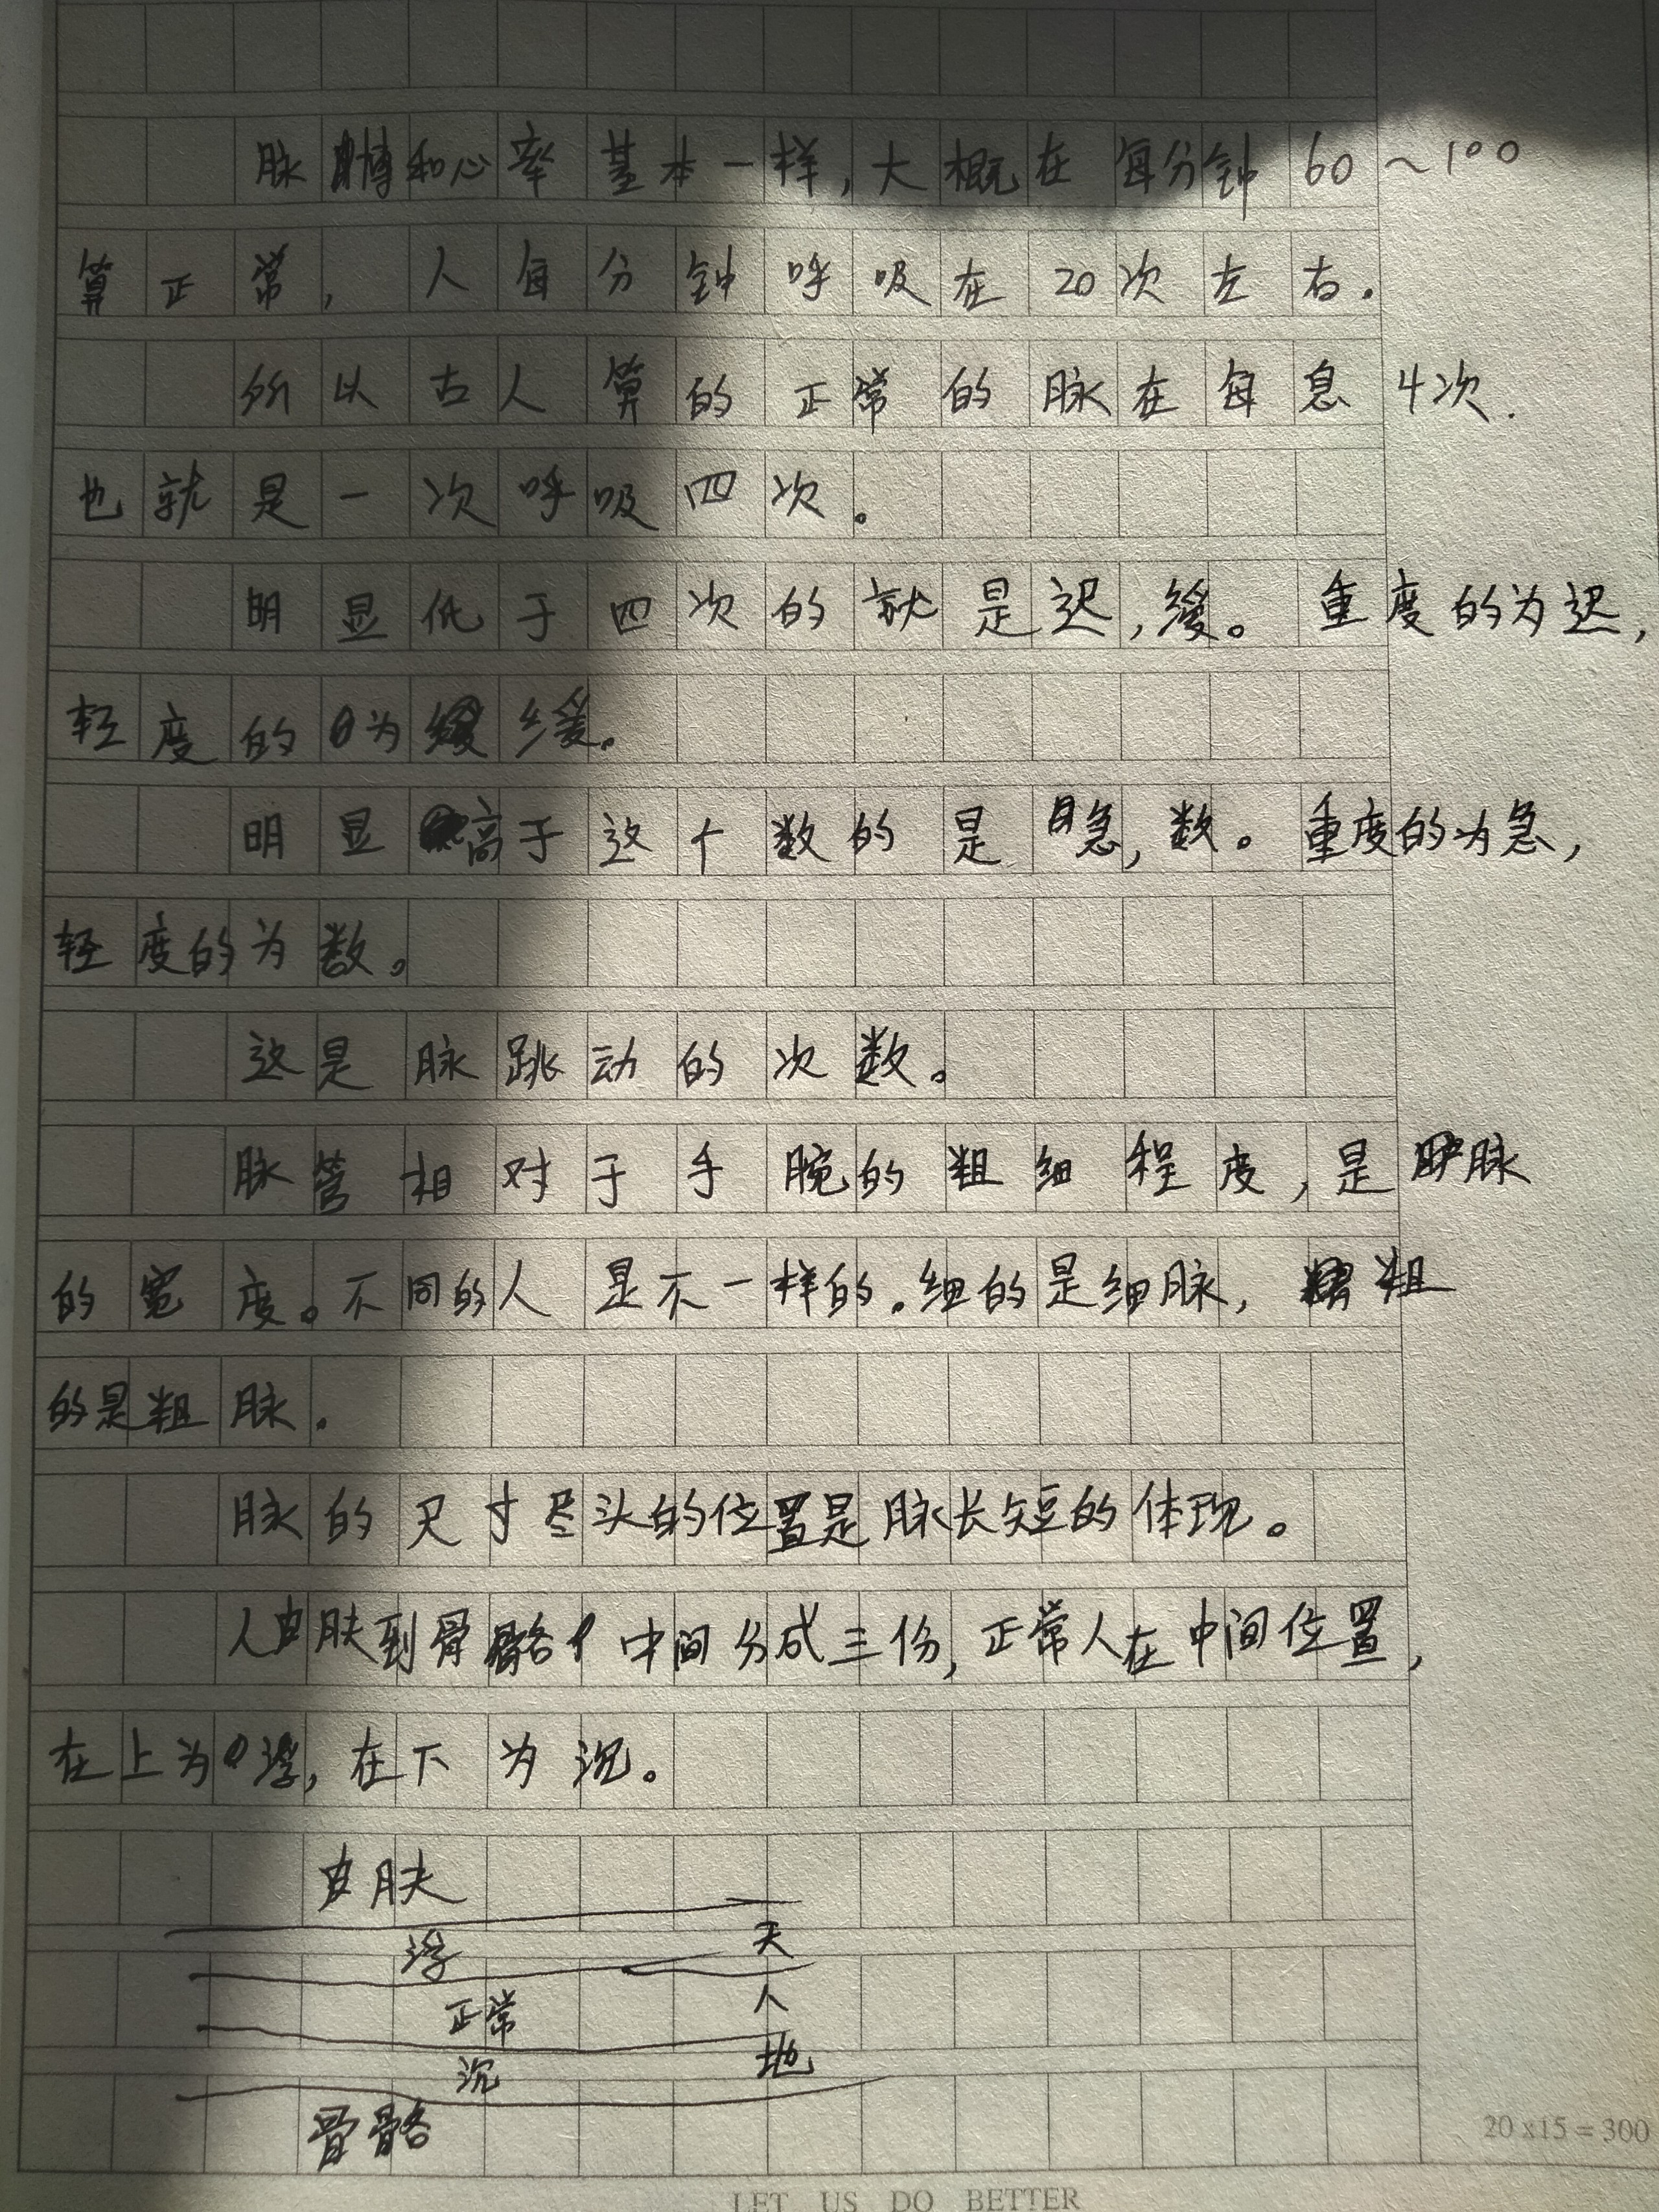 脉膊和心率基本一样,大概在每分钟60~100
算正常,人每分钟呼吸在20次左右.
所以古人算的正常的脉在每息4次.
也就是一次呼吸四次。
明显低于四次的就是迟,缓。重度的为迟,
轻度的为缓。
明显高于这个数的是急,数。重度的为急,
轻度的为数。
这是脉跳动的次数。
脉管相对于手腕的粗细程度,是脉
的宽度。不同的人是不一样的.细的是细脉,粗
的是粗脉.
脉的尺寸尽头的位置是脉长短的体现。
人皮肤到骨骼中间分成三份,正常人在中间位置,
在上为浮,在下为沉。
皮肤
浮 天
正常 人
沉 地
骨骼
20 x15 = 300
LET US DO BETTER